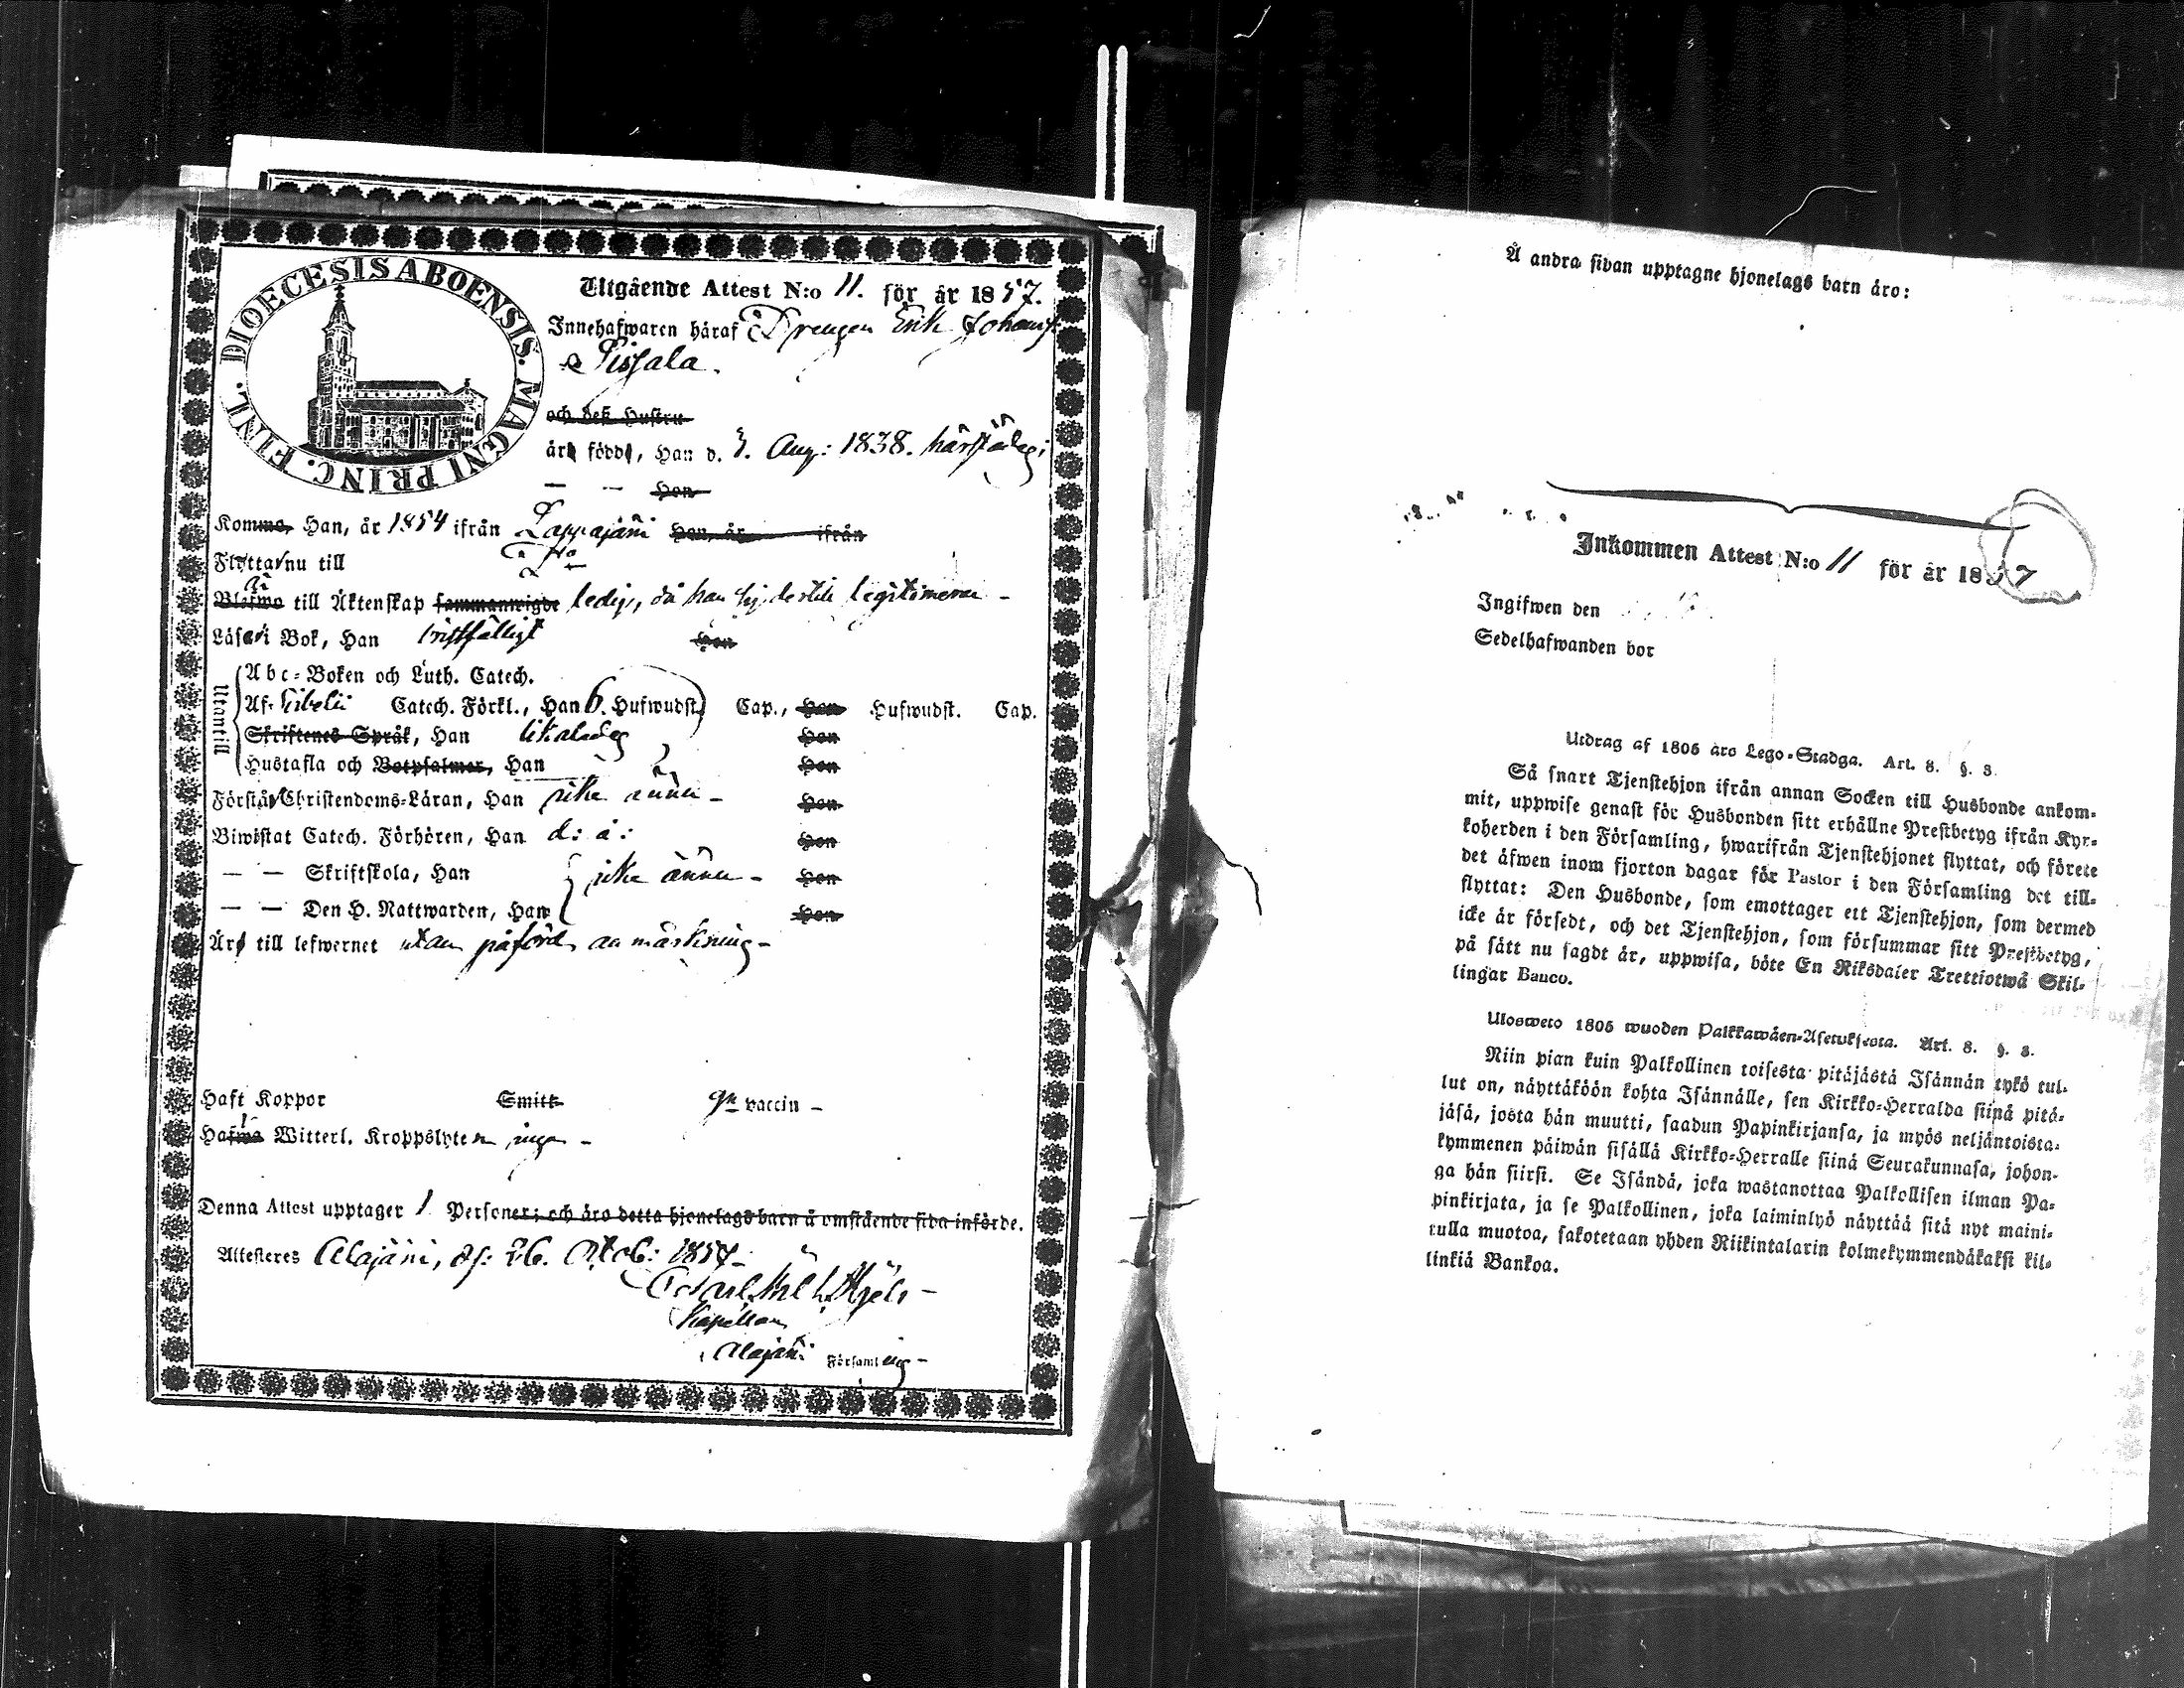 DIOECESIS ABOENSIS. MAGNI PRINC. FINL.
Utgående Attest N:o 11. för år 1857.
Innehafwaren häraf Drengen Erik Johans
Pissala.
och deß Hustru
äro född, Han d. 3. Aug: 1838. härstädes;
— — Hon
Komma, Han, år 1854 ifrån Lappajärvi Hon, år ifrån
Flytta nu till D:o
Blifwa till Äktenskap sammanwigde ledig, då han sig legitimerar –
Läsa i Bok, Han Hon
Utantill
Abc-Boken och Luth. Catech.
Af Catech. Förkl., Han 6. Hufwudst. Cap., Hon Hufwudst. Cap.
Skriftenes Språk, Han likaledes Hon
Hustafla och Botpsalmer, Han Hon
Förstå Christendoms-Läran, Han icke ännu – Hon
Biwistat Catech. Förhören, Han d: å: Hon
— — Skriftskola, Han icke ännu – Hon
— — Den H. Nattwarden, Han Hon
Äro till lefwernet utan påförd anmärkning –
Haft Koppor Smitt vaccin –
Hafwa Witterl. Kroppslyten inga –
Denna Attest upptager 1 Personer; och äro detta hjonelags barn å omstående sida införde.
Attesteres Alajärvi, d. 26. Octob: 1857
Kapellan
Alajärvi Församling –
Å andra sidan upptagne hjonelags barn äro:
Inkommen Attest N:o 11 för år 1857
Ingifwen den
Sedelhafwanden bor
Utdrag af 1805 års Lego-Stadga. Art. 8. §. 8.
Så snart Tjenstehjon ifrån annan Socken till Husbonde ankom-
mit, uppwise genast för Husbonden sitt erhållne Prestbetyg ifrån Kyr-
koherden i den Församling, hwarifrån Tjenstehjonet flyttat, och förete
det äfwen inom fjorton dagar för Pastor i den Församling det till-
flyttat: Den Husbonde, som emottager ett Tjenstehjon, som dermed
icke är försedt, och det Tjenstehjon, som försummar sitt Prestbetyg,
på sätt nu sagdt är, uppwisa, böte En Riksdaler Trettiotwå Skil-
lingar Banco.
Uloswето 1805 wuoden Palkkawäen-Asetuksesta. Art. 8. §. 8.
Niin pian kuin Palkollinen toisesta pitäjästä Isännän tykö tul-
lut on, näyttäköön kohta Isännälle, sen Kirkko-Herralda siinä pitä-
jäsä, josta hän muutti, saadun Papinkirjansa, ja myös neljäntoista-
kymmenen päiwän sisällä Kirkko-Herralle siinä Seurakunnasa, johon-
ga hän siirsi. Se Isändä, joka wastanottaa Palkollisen ilman Pa-
pinkirjata, ja se Palkollinen, joka laiminlyö näyttää sitä nyt maini-
tulla muotoa, sakotetaan yhden Riikintalarin kolmekymmendäkaksi kil-
linkiä Bankoa.